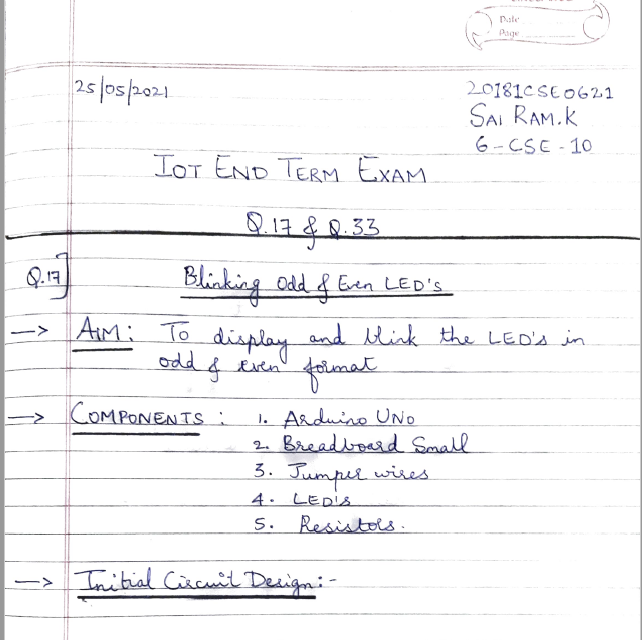 Date
Page
25/05/2021
20181CSE0621
SAI RAM.K
6-CSE-10
IOT END TERM EXAM
Q.17 & Q.33
Q.17]
Blinking Odd & Even LED's
—> AIM: To display and blink the LED's in
odd & even format
—> COMPONENTS : 1. Arduino UNO
2. Breadboard Small
3. Jumper wires
4. LED's
5. Resistors.
—> Initial Circuit Design:-